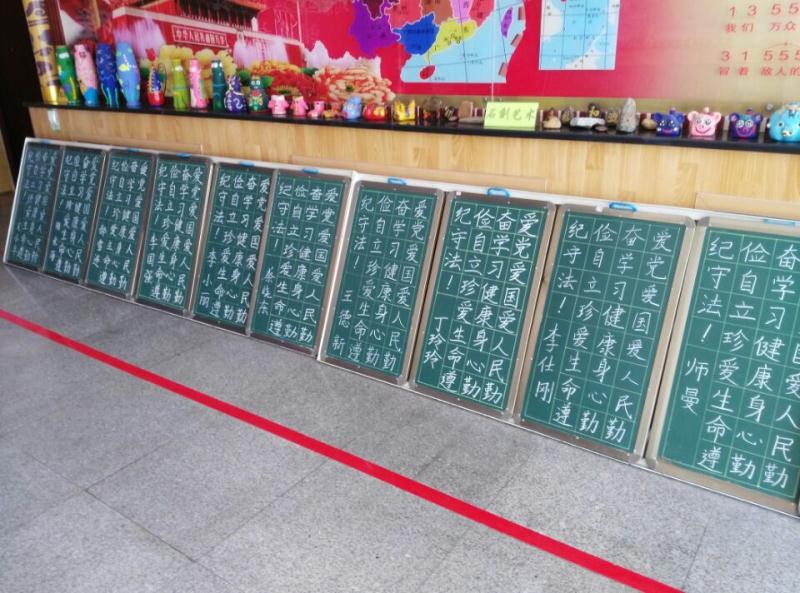 中华人民共和国万岁
1 3 5 5
我们 万众
3 1 5 5 5
冒着 敌人的
爱党爱国爱人民勤
奋学习健康身心勤
俭自立珍爱生命遵
纪守法!
爱党爱国爱人民勤
奋学习健康身心勤
俭自立珍爱生命遵
纪守法!
爱党爱国爱人民勤
奋学习健康身心勤
俭自立珍爱生命遵
纪守法!
爱党爱国爱人民勤
奋学习健康身心勤
俭自立珍爱生命遵
纪守法! 李国强
爱党爱国爱人民勤
奋学习健康身心勤
俭自立珍爱生命遵
纪守法! 李小丽
爱党爱国爱人民勤
奋学习健康身心勤
俭自立珍爱生命遵
纪守法!
爱党爱国爱人民勤
奋学习健康身心勤
俭自立珍爱生命遵
纪守法! 王德新
爱党爱国爱人民勤
奋学习健康身心勤
俭自立珍爱生命遵
纪守法! 丁玲玲
爱党爱国爱人民勤
奋学习健康身心勤
俭自立珍爱生命遵
纪守法! 李仕刚
奋学习健康身心勤
俭自立珍爱生命遵
纪守法! 师曼